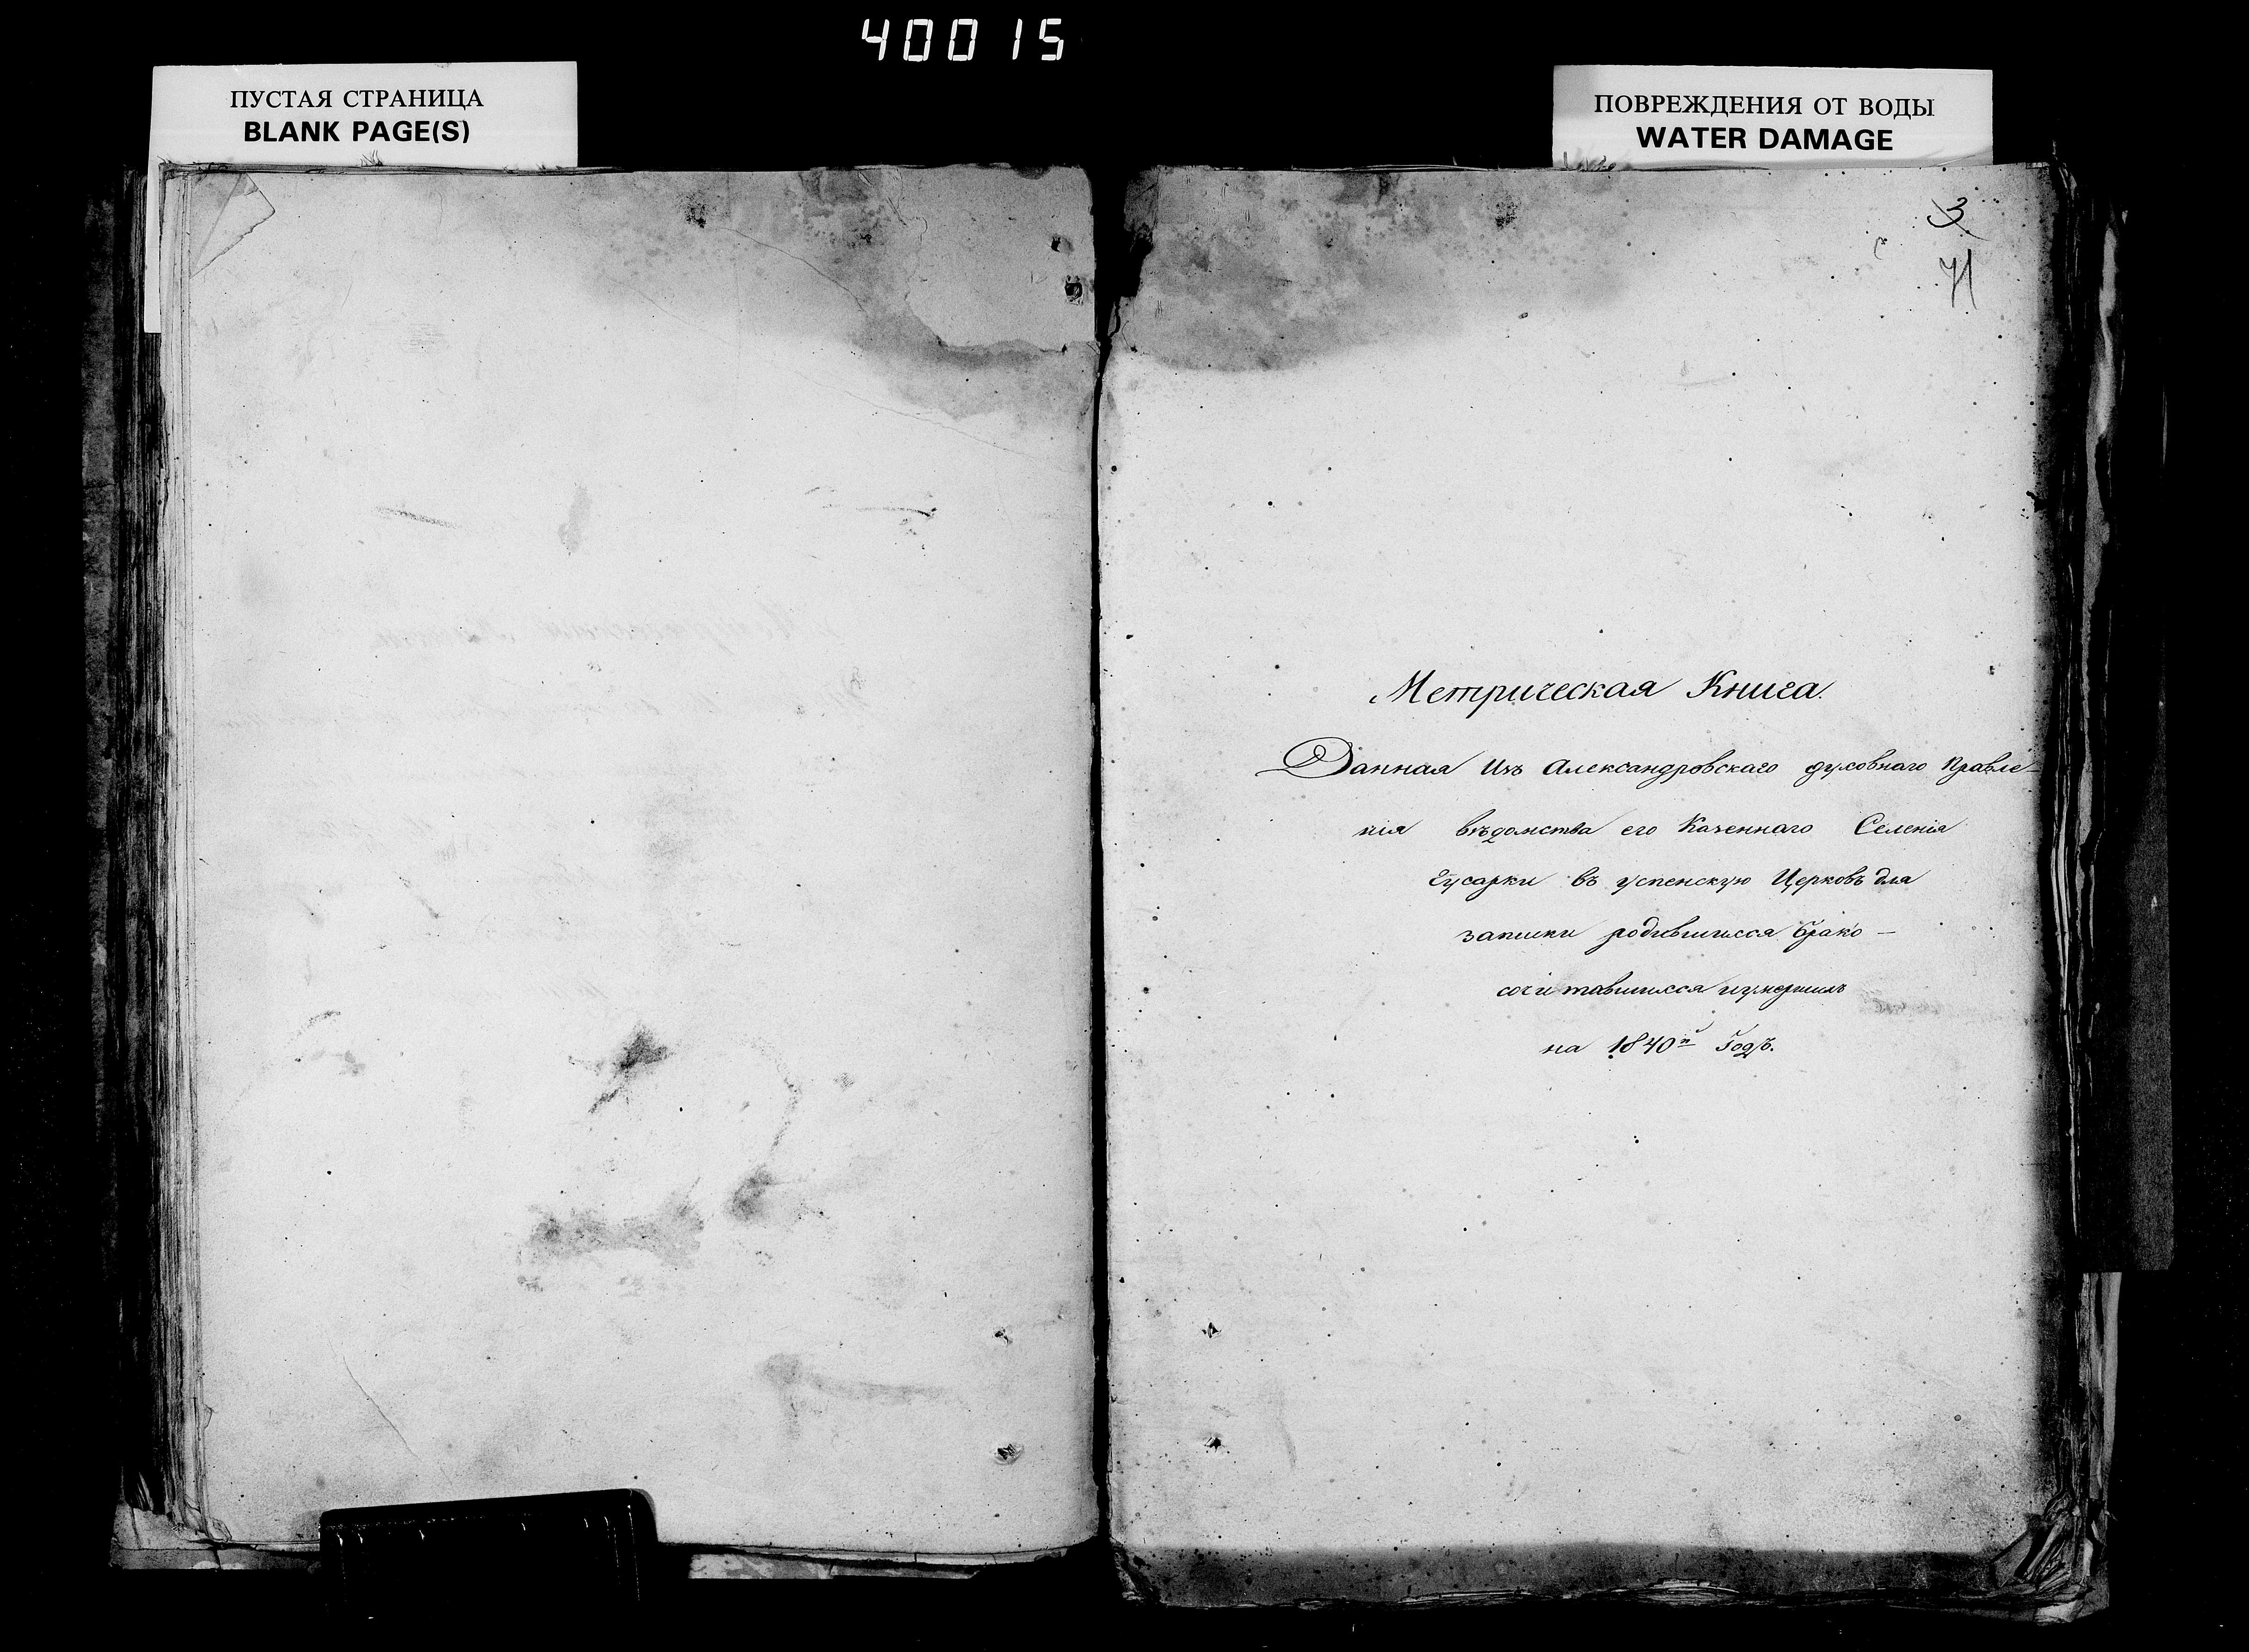 40015
ПУСТАЯ СТРАНИЦА
BLANK PAGE(S)
ПОВРЕЖДЕНИЯ ОТ ВОДЫ
WATER DAMAGE
3
71
Метрическая Книга.
Данная Изъ Александровскаго духовнаго Правле-
нія вѣдомства его Казеннаго Селенія
Гусарки въ успенскую Церковь для
записки родившихся брако-
сочитавшихся и умершихъ
на 1840й Годъ.